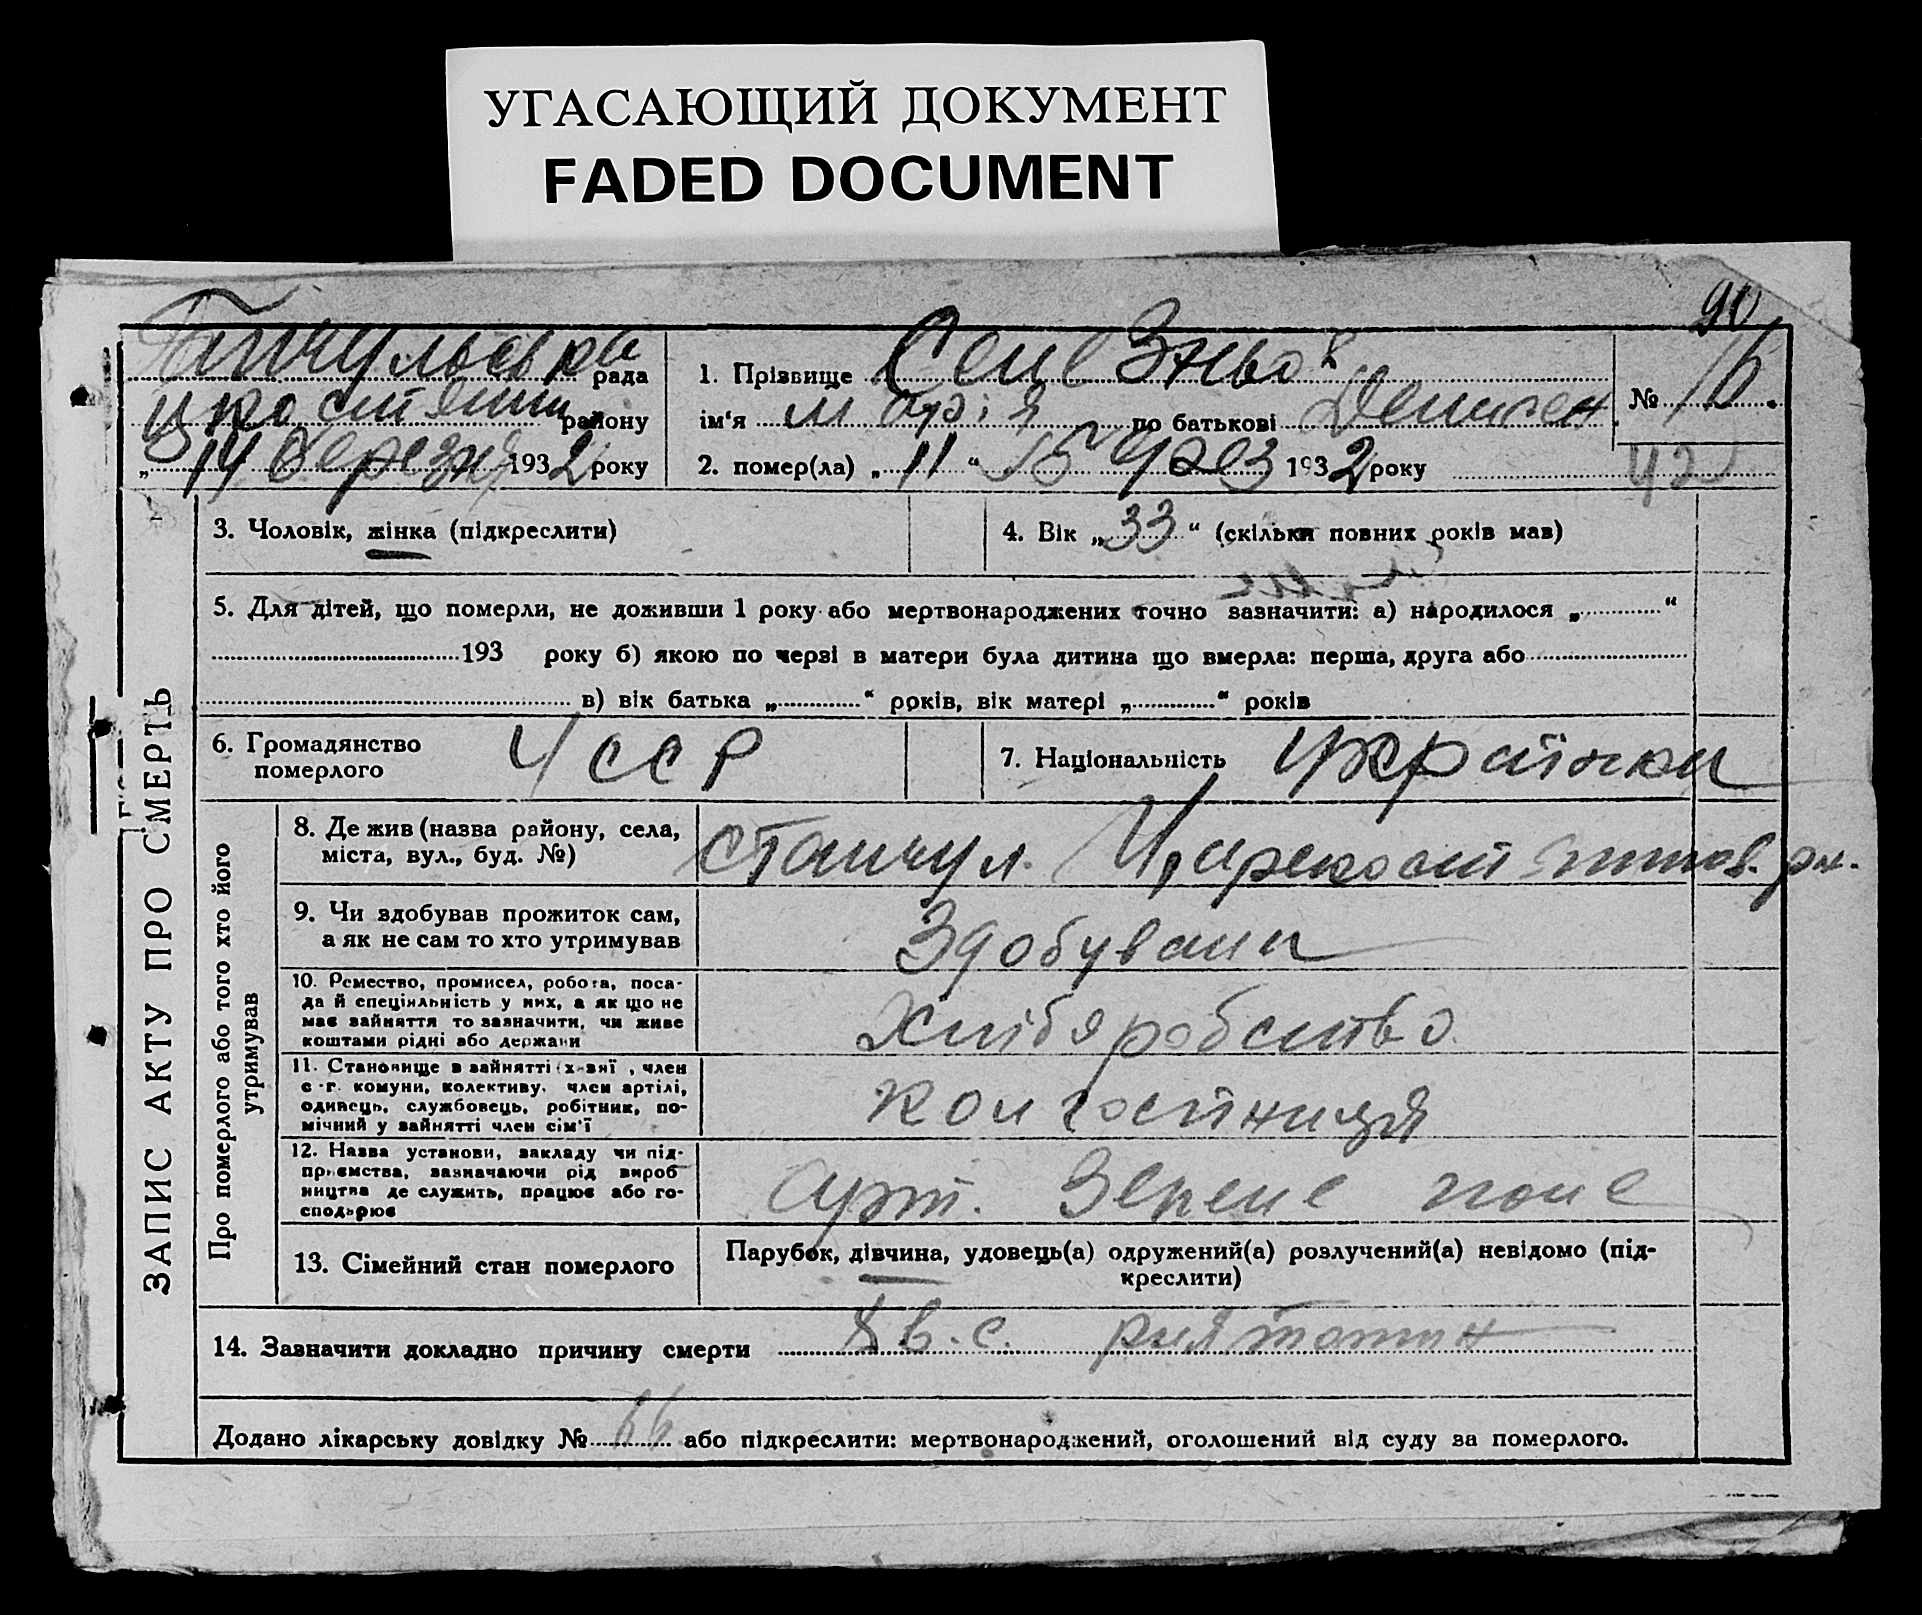 УГАСАЮЩИЙ ДОКУМЕНТ
FADED DOCUMENT
90
рада
району
„ 14 березня 1932 року
1. Прізвище
ім‘я Марія по батькові
2. помер(ла) „ 11 “ 1932 року
№ 16.
ЗАПИС АКТУ ПРО СМЕРТЬ
3. Чоловік, жінка (підкреслити)
4. Вік „ 33 “ (скільки повних років мав)
5. Для дітей, що померли, не доживши 1 року або мертвонароджених точно зазначити: а) народилося „ “
193 року б) якою по черзі в матери була дитина що вмерла: перша, друга або
в) вік батька „ “ років, вік матері „ “ років
6. Громадянство
померлого
УССР
7. Національність Українка
Про померлого або того хто його
утримував
8. Де жив (назва району, села,
міста, вул., буд. №)
9. Чи здобував прожиток сам,
а як не сам то хто утримував
Здобувала
10. Ремество, промисел, робота, поса-
да й спеціяльність у них, а як що не
має зайняття то зазначити, чи живе
коштами рідні або держави
Хлібяробство
11. Становище в зайнятті , член
с.-г. комуни, колективу, член артілі,
одинець, службовець, робітник, по-
мічний у зайнятті член сім'ї
колгоспниця
12. Назва установи, закладу чи під-
приємства, зазначаючи рід вироб
ництва де служить, працює або го-
сподарює
Арт. Зелене поле
13. Сімейний стан померлого
Парубок, дівчина, удовець(а) одружений(а) розлучений(а) невідомо (під-
креслити)
14. Зазначити докладно причину смерти
Додано лікарську довідку № 66 або підкреслити: мертвонароджений, оголошений від суду за померлого.